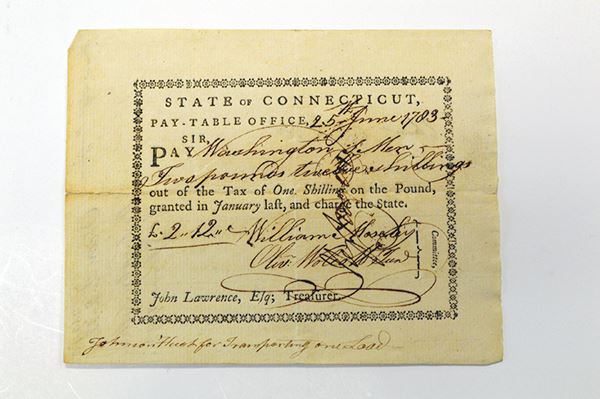 STATE OF CONNECTICUT,
PAY-TABLE OFFICE, 25th June 1783
SIR,
PAY Washington's Men
Two pounds twelve shillings
out of the Tax of One Shilling on the Pound,
granted in January last, and charge the State.
£ 2 " 12 "
William Moseley
Oliv. Wolcott Jund
Committee.
John Lawrence, Esq; Treasurer.
for Transporting one Load